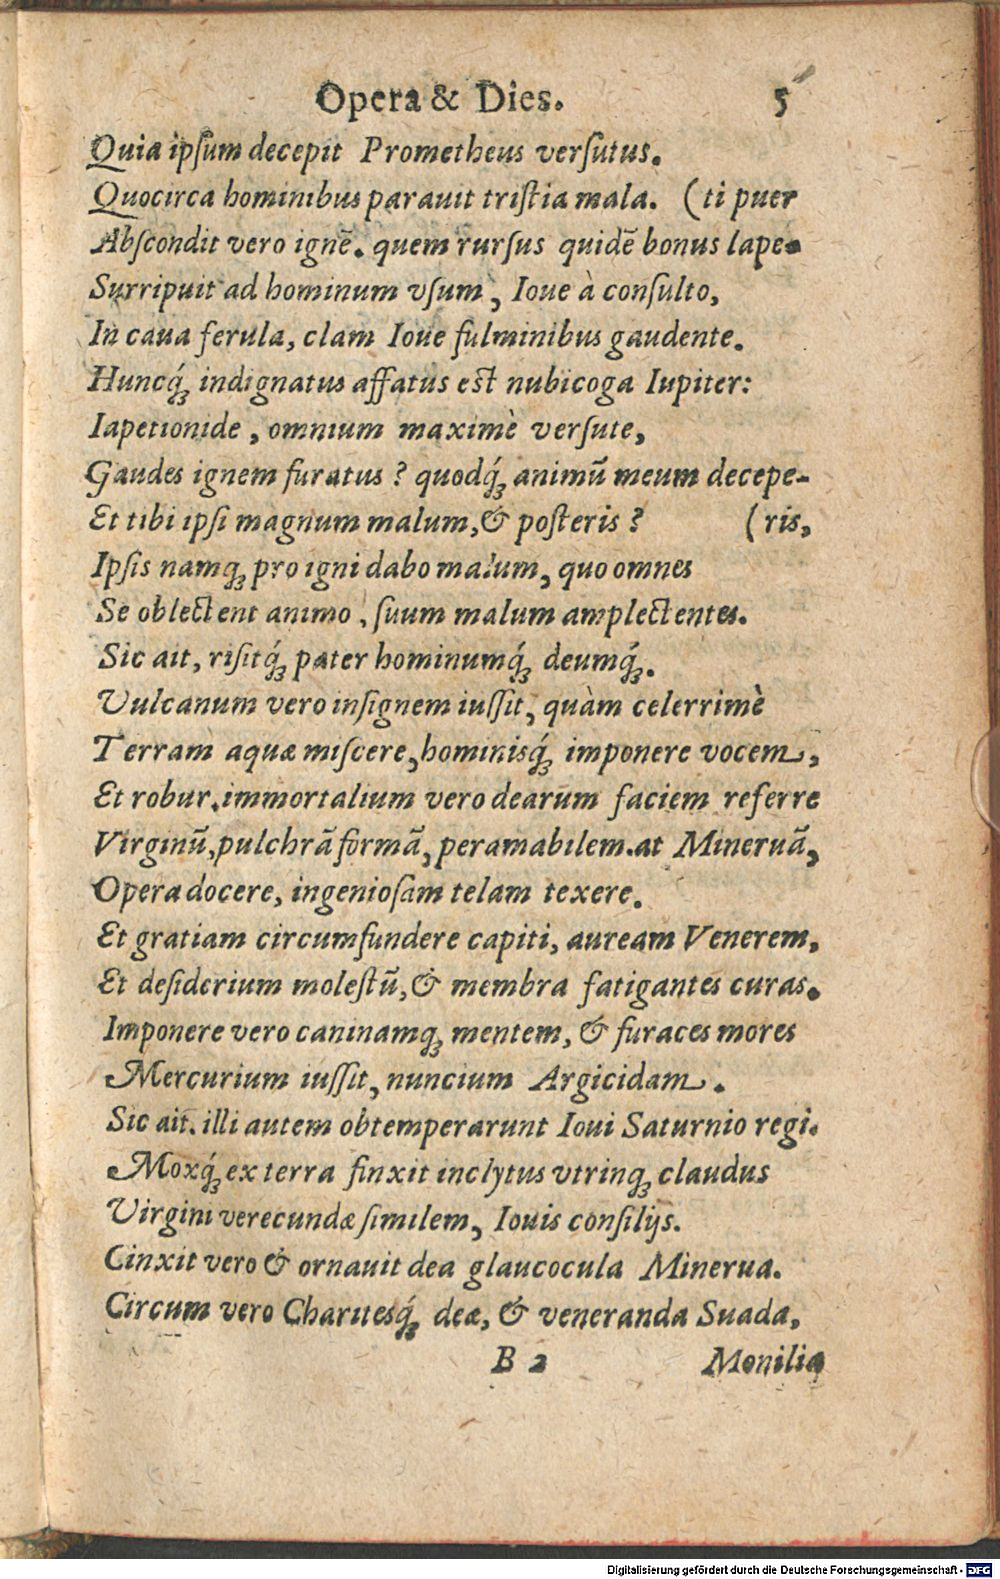 Opera & Dies. 5
Quia ipſum decepit Prometheus verſutus.
Quocirca hominibus parauit triſtia mala. (ti puer
Abſcondit vero ignẽ. quem rurſus quidẽ bonus Iape-
Surripuit ad hominum vſum, Ioue à conſulto,
In caua ferula, clam Ioue fulminibus gaudente.
Huncq́; indignatus affatus eſt nubicoga Iupiter:
Iapetionide, omnium maximè verſute,
Gaudes ignem furatus? quodq́; animũ meum decepe-
Et tibi ipſi magnum malum, & poſteris? (ris,
Ipſis namq; pro igni dabo malum, quo omnes
Se oblectent animo, ſuum malum amplectentes.
Sic ait, riſitq́; pater hominumq́; deumq́;.
Vulcanum vero inſignem iuſſit, quàm celerrimè
Terram aquæ miſcere, hominisq́; imponere vocem,
Et robur. immortalium vero dearum faciem referre
Virginũ, pulchrã formã, peramabilem. at Mineruã,
Opera docere, ingenioſam telam texere.
Et gratiam circumfundere capiti, auream Venerem,
Et deſiderium moleſtũ, & membra fatigantes curas.
Imponere vero caninamq; mentem, & furaces mores
Mercurium iuſſit, nuncium Argicidam.
Sic ait. illi autem obtemperarunt Ioui Saturnio regi.
Moxq́; ex terra finxit inclytus vtrinq; claudus
Virgini verecundæ ſimilem, Iouis conſilijs.
Cinxit vero & ornauit dea glaucocula Minerua.
Circum vero Charitesq́; deæ, & veneranda Suada,
B 2 Monilia
Digitalisierung gefördert durch die Deutsche Forschungsgemeinschaft - DFG